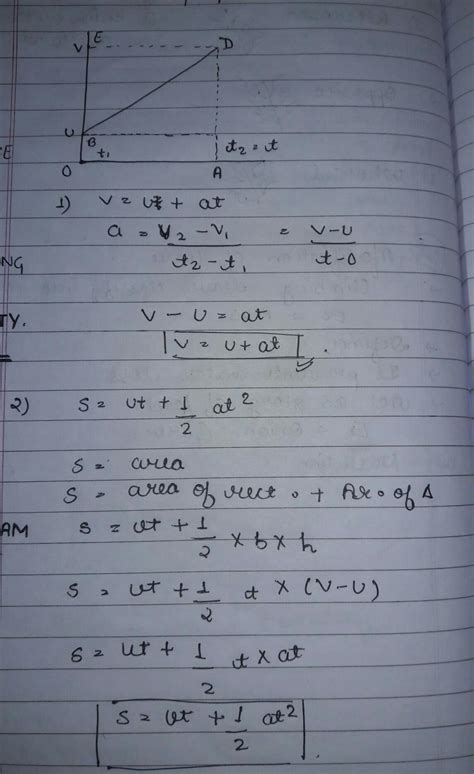 E
V D
U B
t₁ t₂ = t
O A
CE
1) V = u + at
a = V₂ - V₁ / t₂ - t₁ = V-U / t-0
NG
V - U = at
TY.
V = U + at
2) S = ut + 1/2 at²
S = area
S = area of rect. + Ar. of Δ
AM S = ut + 1/2 × b × h
S = ut + 1/2 t × (V-U)
S = ut + 1/2 t × at
S = ut + 1/2 at²